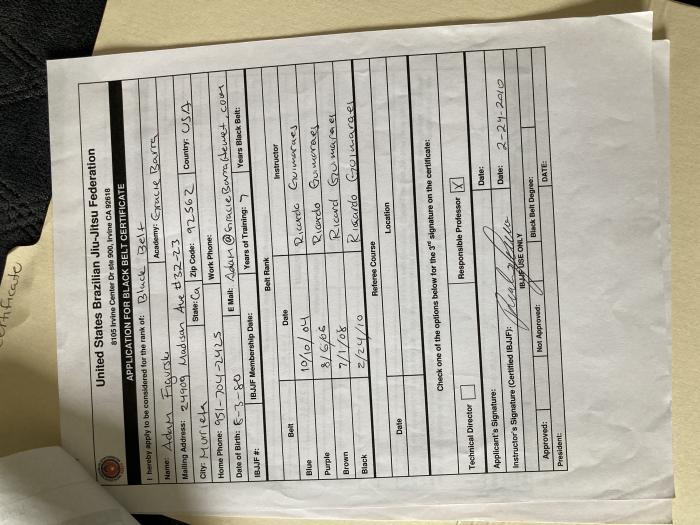 Certificate
United States Brazilian Jiu-Jitsu Federation
8105 Irvine Center Dr ste 900, Irvine CA 92618
APPLICATION FOR BLACK BELT CERTIFICATE
I hereby apply to be considered for the rank of: Black Belt
Name: Adam Academy: Gracie Barra
Mailing Address: 24909 Madison Ave #32-23
City: Murieta State: Ca Zip Code: 92562 Country: USA
Home Phone: 951-704-2425 Work Phone:
Date of Birth: 8-3-80 E Mail: Adam@GracieBarraHemet.com
IBJJF #: IBJJF Membership Date: Years of Training: 7 Years Black Belt:
Belt Rank
Belt Date Instructor
Blue 10/10/04 Ricardo Guimaraes
Purple 8/6/06 Ricardo Guimaraes
Brown 7/1/08 Ricard Guimaraes
Black 2/24/10 Riscardo Guimaraes
Referee Course
Date Location
Check one of the options below for the 3rd signature on the certificate:
Technical Director Responsible Professor X
Applicant's Signature: Date:
Instructor's Signature (Certified IBJJF): Date: 2-24-2010
IBJJF USE ONLY
Approved: Not Approved: Black Belt Degree:
President: DATE: